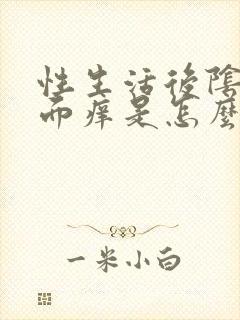 性生活後陰
而痒是怎麼
一米小白